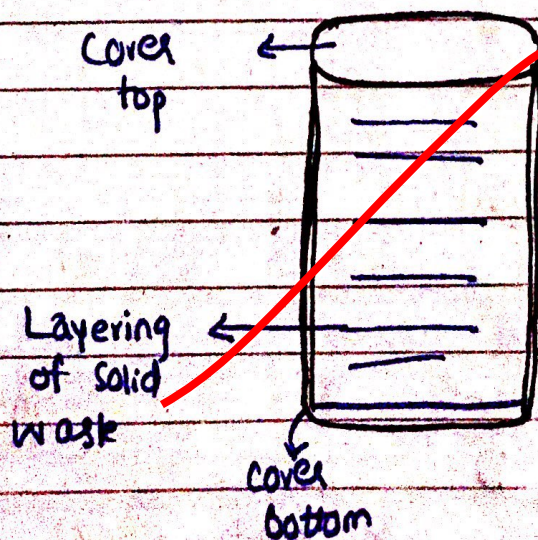 Cover
top
Layering
of solid
waste
cover
bottom